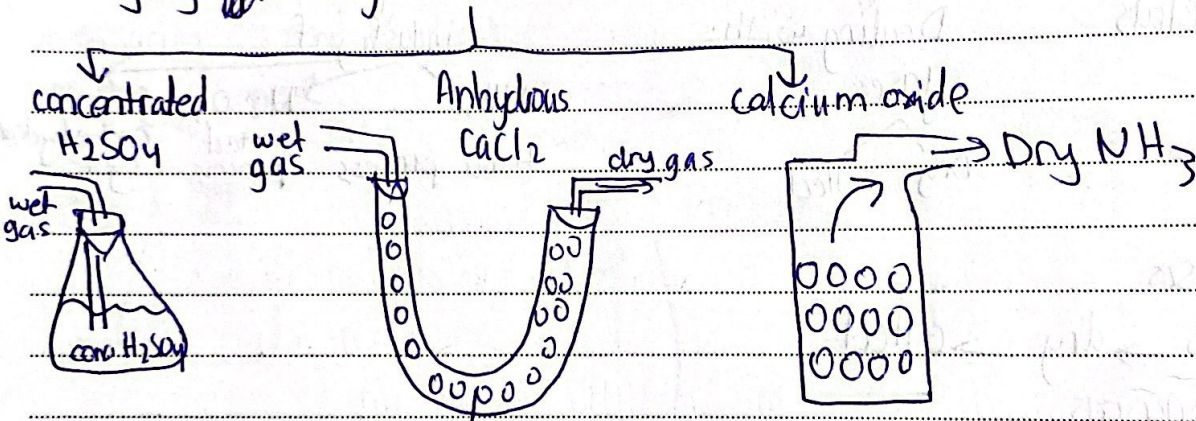 concentrated
H2SO4
wet
gas
conc H2SO4
Anhydrous
CaCl2
wet
gas
dry gas
calcium oxide
Dry NH3